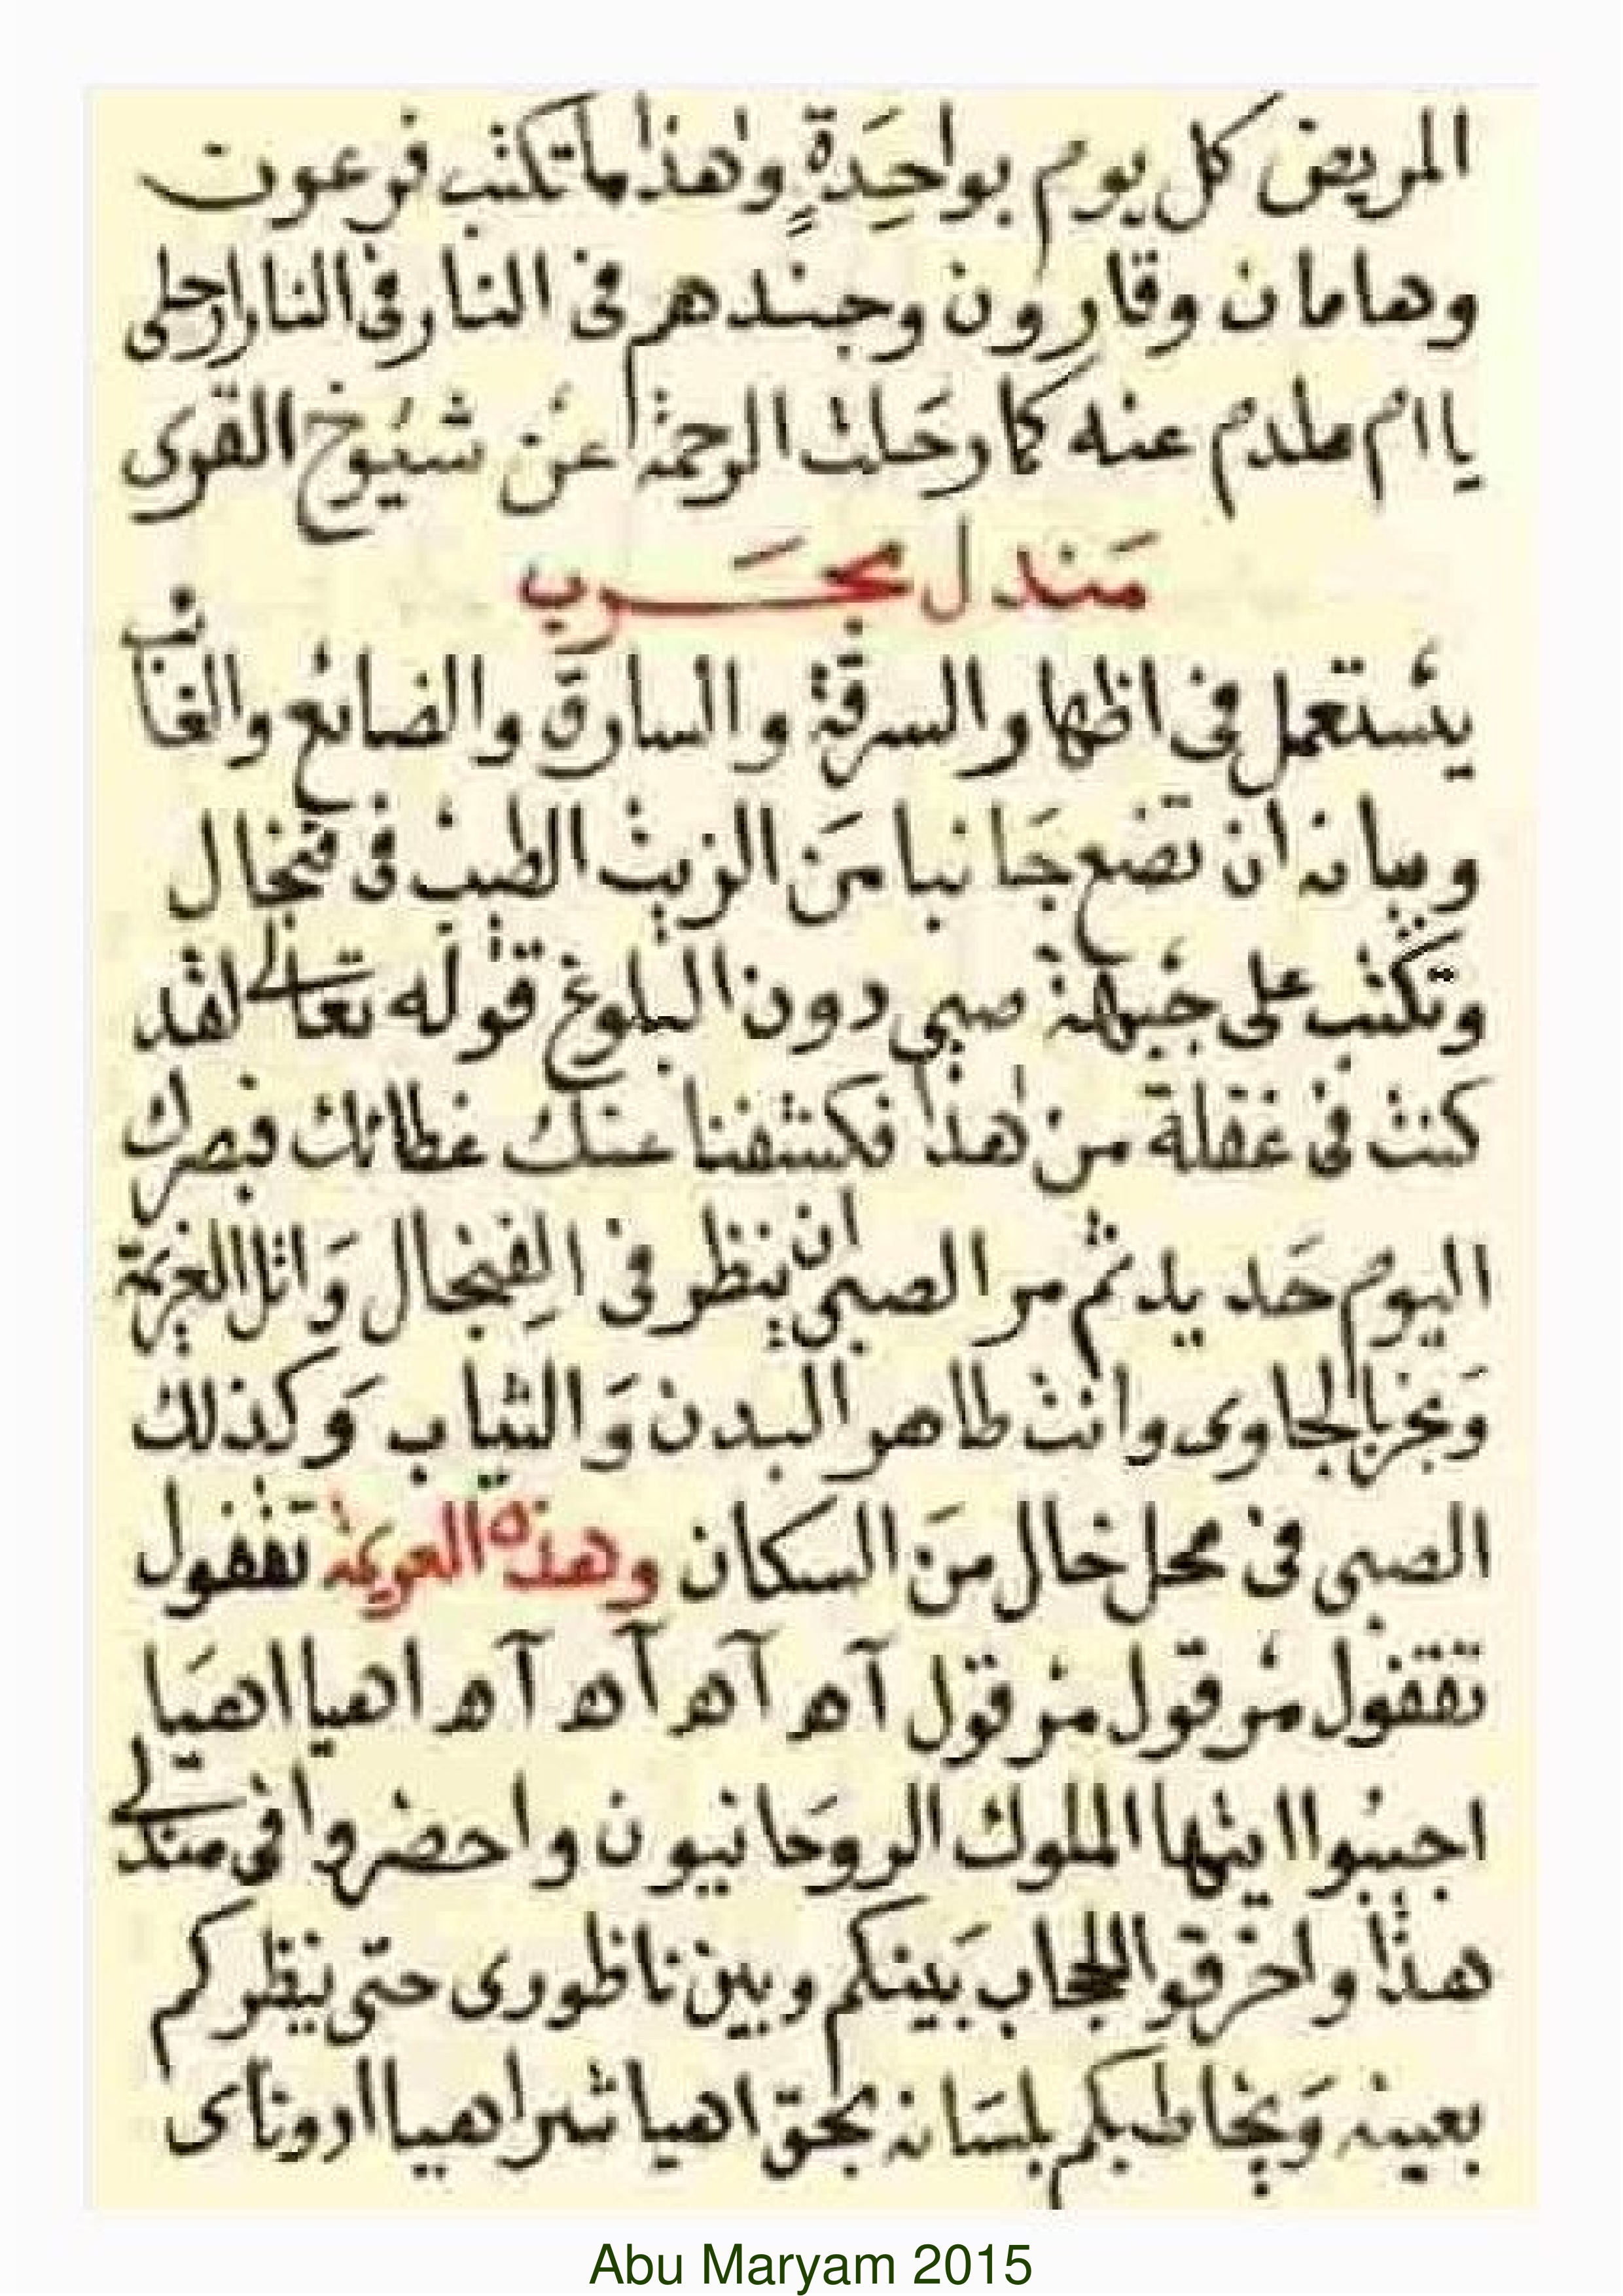 المريض كل يوم بواحِدَةٍ وهذا ما تكتب فرعون
وهامان وقارون وجندهم فى النار فى النار ارحلى
يا ام ملدم عنه كما رحَلت الرحمة عن شيوخ القرى
مَندل مجَرب
يستعمل فى اظهار السرقة والسارق والضائع والغائب
وبيانه ان تضع جَانبا مَن الزيت الطيب فى فنجال
وتكتب على جبهة صبى دون البلوغ قوله تعالى لقد
كنت فى غفلة من هذا فكشفنا عنك غطائك فبصرك
اليوم حَديد ثم مر الصبى ان ينظر فى الفِنجال وَاتل العزيمة
وَبخر بالجاوى وانت طاهر البدن وَالثياب وَكذلك
الصبى فى محل خال مَن السكان وهذه العزيمة تقفول
تقفول مرقول مرقول آه آه آه آه اهيا اهيَا
اجيبوا ايتها الملوك الروحَانيون واحضروا فى مندلى
هذا واخرقوا الحجاب بَينكم وبين ناظورى حتى ينظركم
بعينه وَيخاطبكم بلسَانه بحق اهيا شراهيا ادوناى
Abu Maryam 2015